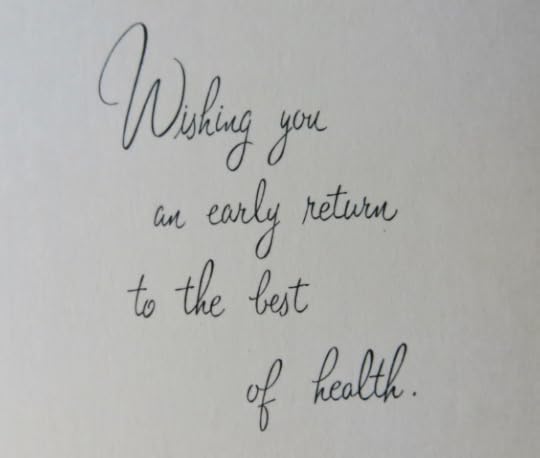 Wishing you
an early return
to the best
of health.